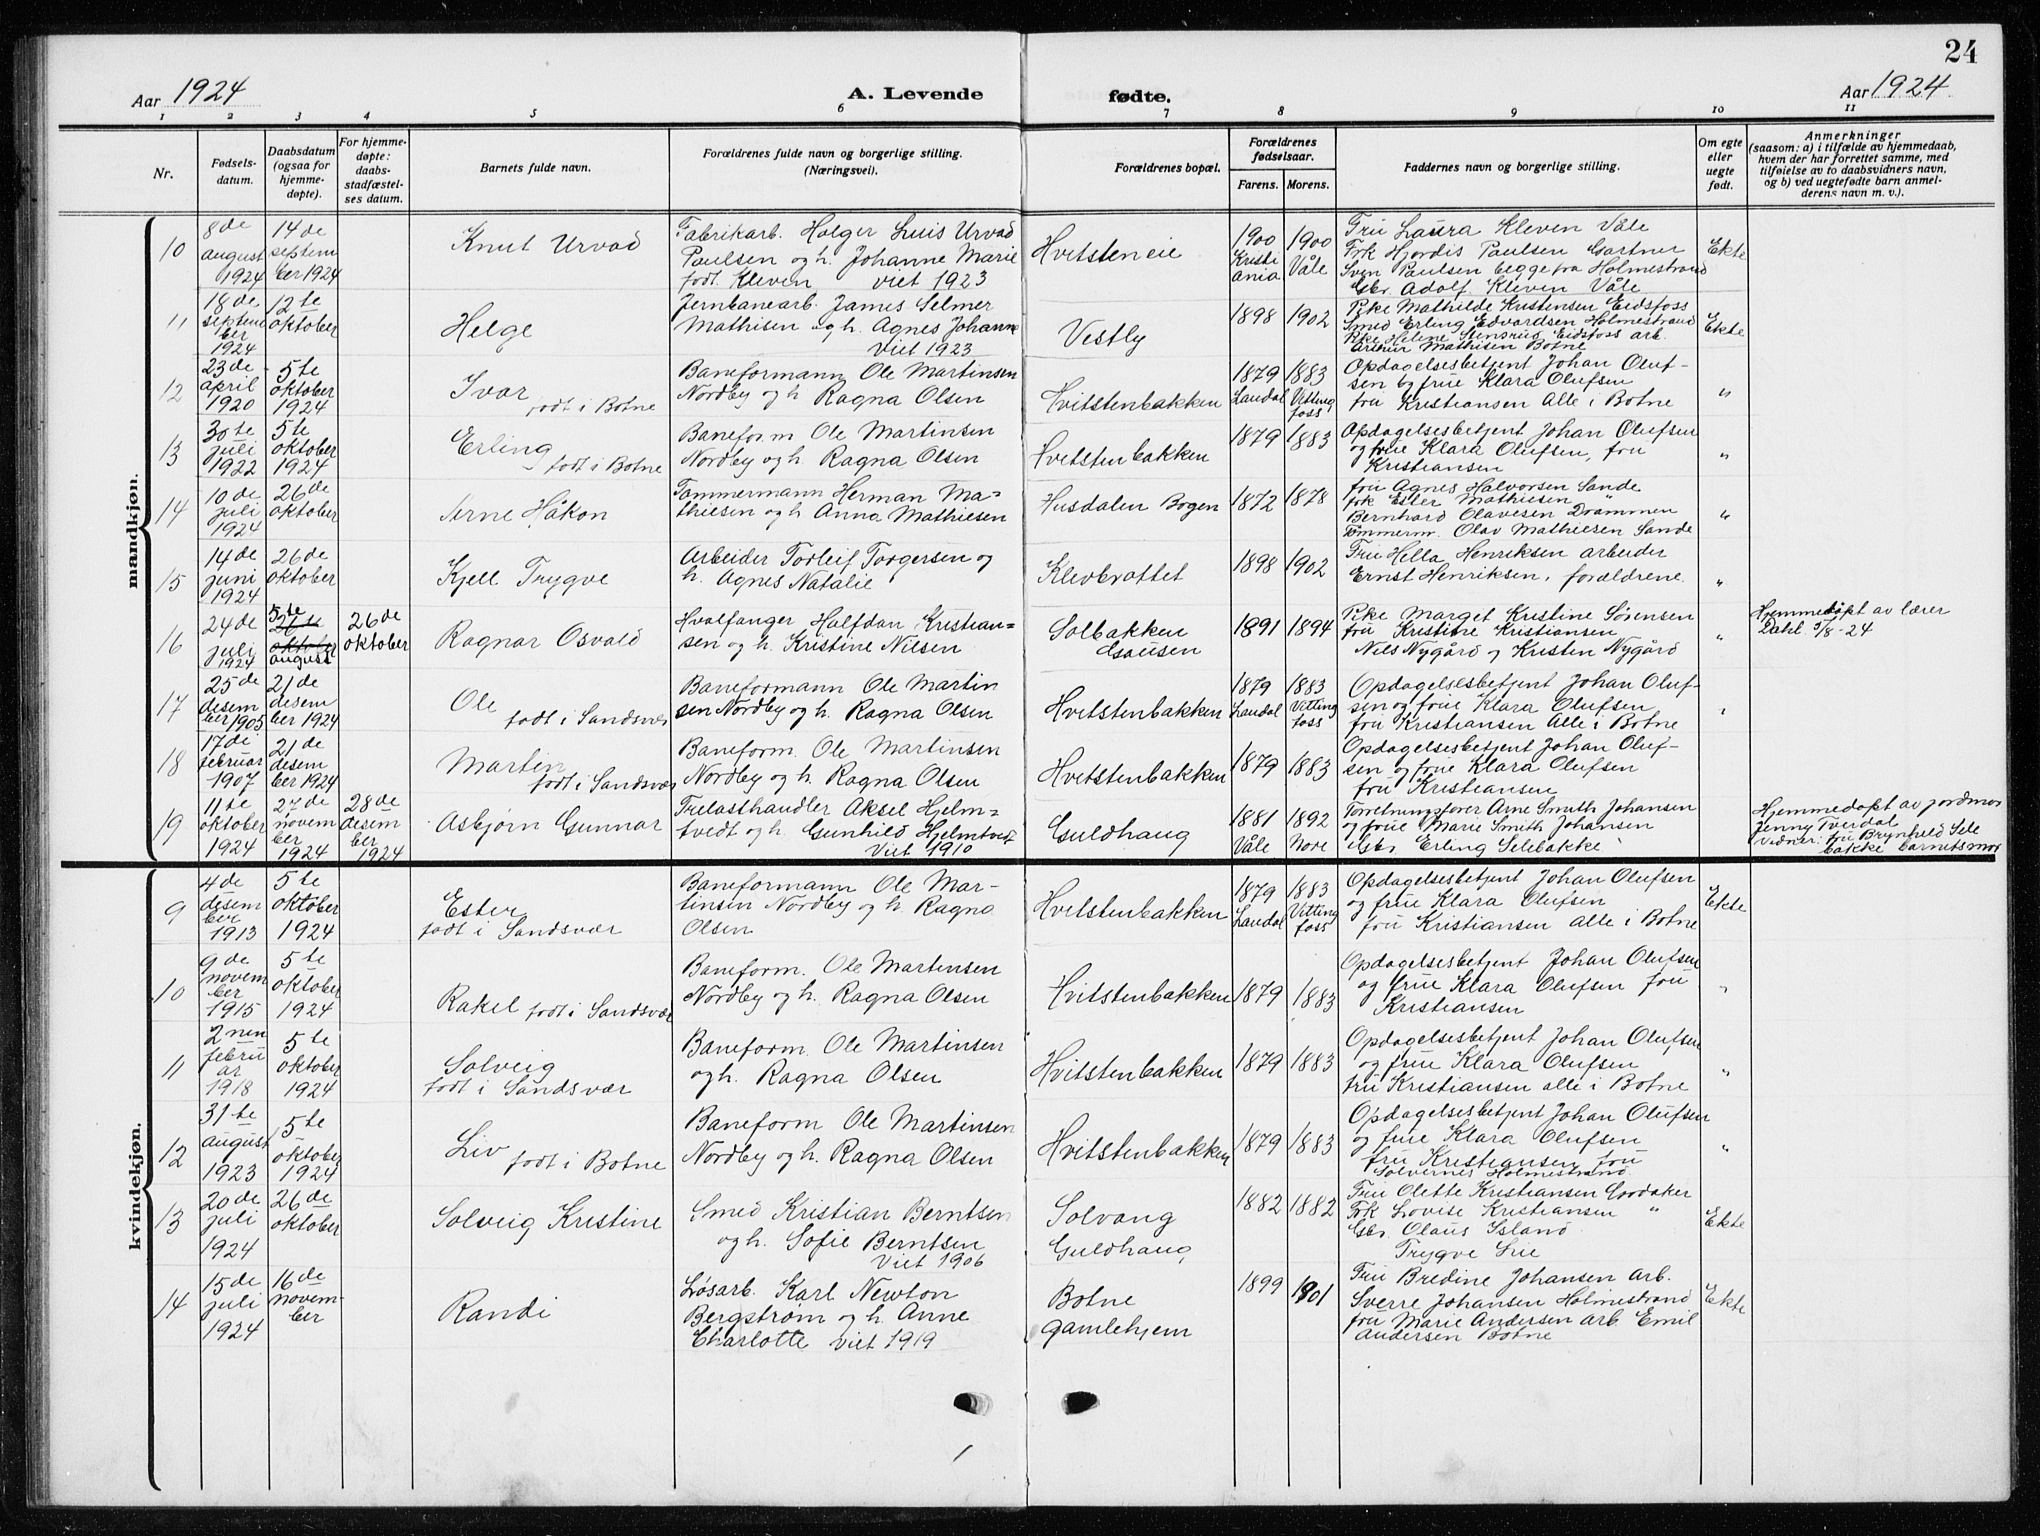 24
Aar 1924
A. Levende
fødte.
Aar 1924
1 2 3 4 5 6 7 8 9 10 11
Nr.
Fødsels-
datum.
Daabsdatum
(ogsaa for
hjemme-
døpte).
For hjemme-
døpte:
daabs-
stadfæstel-
ses datum.
Barnets fulde navn.
Forældrenes fulde navn og borgerlige stilling.
(Næringsvei).
Forældrenes bopæl.
Forældrenes
fødselsaar.
Farens.
Morens.
Faddernes navn og borgerlige stilling.
Om egte
eller
uegte
født.
Anmerkninger
(saasom: a) i tilfælde av hjemmedaab,
hvem der har forrettet samme, med
tilføielse av to daabsvidners navn,
og b) ved uegtefødte barn anmel-
derens navn m. v.).
mandkjøn.
10
8de
august
1924
14de
septem
ber 1924
Knut Urvad
Fabrikarb. Holger Luis Urvad
Paulsen og h. Johanne Marie
født Kleven viet 1923
Hvitsteneie
1900
Kristi
ania
1900
Våle
Fru Laura Kleven Våle
Frk Hjørdis Paulsen Gartner
Sven Paulsen begge fra Holmestrand
Gbr. Adolf Kleven Våle
Ekte
11
18de
septem
ber
1924
12te
oktober
Helge
Jernbanearb. James Selmer
Mathisen og h. Agnes Johanne
Viet 1923
Vestly
1898
1902
Pike Mathilde Kristensen Eidsfoss
Smed Erling Edvardsen Holmestrand
Pike Helene Stensrud Eidsfoss arb.
Arthur Mathisen Botne
Ekte
12
23de
april
1920
5te
oktober
1924
Ivar
født i Botne
Baneformann Ole Martinsen
Nordby og h. Ragna Olsen
Hvitstenbakken
1879
Laudal
1883
Vitting
foss
Opdagelsesbetjent Johan Oluf-
sen og frue Klara Olufsen
fru Kristiansen Alle i Botne
"
13
30te
juli
1922
5te
oktober
1924
Erling
født i Botne
Baneform Ole Martinsen
Nordby og h. Ragna Olsen
Hvitstenbakken
1879
1883
Opdagelsesbetjent Johan Olufsen
og frue Klara Olufsen, fru
Kristiansen
"
14
10de
juli
1924
26de
oktober
Arne Håkon
Tømmermann Herman Ma=
thiesen og h. Anna Mathiesen
Husdalen Bogen
1872
1878
fru Agnes Halvorsen Sande
frk Ester Mathiesen "
Bernhard Olavesen Drammen
Tømmerm. Olav Mathiesen Sande
"
15
14de
juni
1924
26de
oktober
Kjell Trygve
Arbeider Torleif Torgersen og
h. Agnes Natalie
Klevbrottet
1898
1902
Fru Hella Henriksen arbeider
Ernst Henriksen, forældrene.
"
16
24de
juli
1924
5te
26de
oktober
august
26de
oktober
Ragnar Osvald
Hvalfanger Halfdan Kristian=
sen og h. Kristine Nilsen
Solbakken
Esausen
1891
1894
Pike Marget Kristine Sørensen
fru Kristine Kristiansen
Nils Nygård og Kristen Nygård
"
Hjemmedøpt av lærer
5/8-24
17
25de
desem
ber 1905
21de
desem
ber 1924
Ole
født i Sandsvær
Baneformann Ole Martin
sen Nordby og h. Ragna Olsen
Hvitstenbakken
1879
Laudal
1883
Vitting
foss
Opdagelsesbetjent Johan Oluf-
sen og frue Klara Olufsen
fru Kristiansen Alle i Botne
"
18
17de
februar
1907
21de
desem
ber 1924
Martin
født i Sandsvær
Baneform. Ole Martinsen
Nordby og h. Ragna Olsen
Hvitstenbakken
1879
1883
Opdagelsesbetjent Johan Oluf-
sen og frue Klara Olufsen
fru Kristiansen
19
11te
oktober
1924
27de
novem
ber
1924
28de
desem
ber
1924
Asbjørn Gunnar
Trelasthandler Aksel Hjelm=
tvedt og h. Gunhild Hjelmtvedt
Viet 1910
Guldhaug
1881
Våle
1892
Nore
Forretningsfører Arne Smith Johansen
og frue Marie Smith Johansen
Gbr. Erling Selebakke
Hjemmedøpt av jordmor
Jenny Tverdal
vidner: fru Brynhild Sele
bakke barnets mor
kvindekjøn.
9
4de
desem
ber
1913
5te
oktober
1924
Ester
født i Sandsvær
Baneformann Ole Mar-
tinsen Nordby og h. Ragna
Olsen
Hvitstenbakken
1879
Laudal
1883
Vitting
foss
Opdagelsesbetjent Johan Olufsen
og frue Klara Olufsen
fru Kristiansen Alle i Botne
Ekte
10
9de
novem
ber
1915
5te
oktober
1924
Rakel født i Sandsvær
Baneform. Ole Martinsen
Nordby og h. Ragna Olsen
Hvitstenbakken
1879
1883
Opdagelsesbetjent Johan Olufsen
og frue Klara Olufsen fru
Kristiansen
"
11
2nen
febru
ar
1918
5te
oktober
1924
Solveig
født i Sandsvær
Baneform. Ole Martinsen
og h. Ragna Olsen
Hvitstenbakken
1879
1883
Opdagelsesbetjent Johan Olufsen
og frue Klara Olufsen
fru Kristiansen alle i Botne
"
12
31te
august
1923
5te
oktober
1924
Liv
født i Botne
Baneform Ole Martinsen
Nordby og h. Ragna Olsen
Hvitstenbakken
1879
1883
Opdagelsesbetjent Johan Olufsen
og frue Klara Olufsen
fru Kristiansen fru
Solvernes Holmestrand
"
13
20de
juli
1924
26de
oktober
Solveig Kristine
Smed Kristian Berntsen
og h. Sofie Berntsen
Viet 1906
Solvang
Guldhaug
1882
1882
Fru Olette Kristiansen Gordaker
Frk Lovise Kristiansen "
Gbr. Olaus Island
Trygve Lie
Ekte
14
15de
juli
1924
16de
novem-
ber
Randi
Løsarb. Karl Newton
Bergstrøm og h. Anne
Charlotte viet 1919
Botne
gamlehjem
1899
1901
Fru Bredine Johansen arb.
Sverre Johansen Holmestrand
fru Marie Andersen arb Emil
Andersen Botne
Ekte